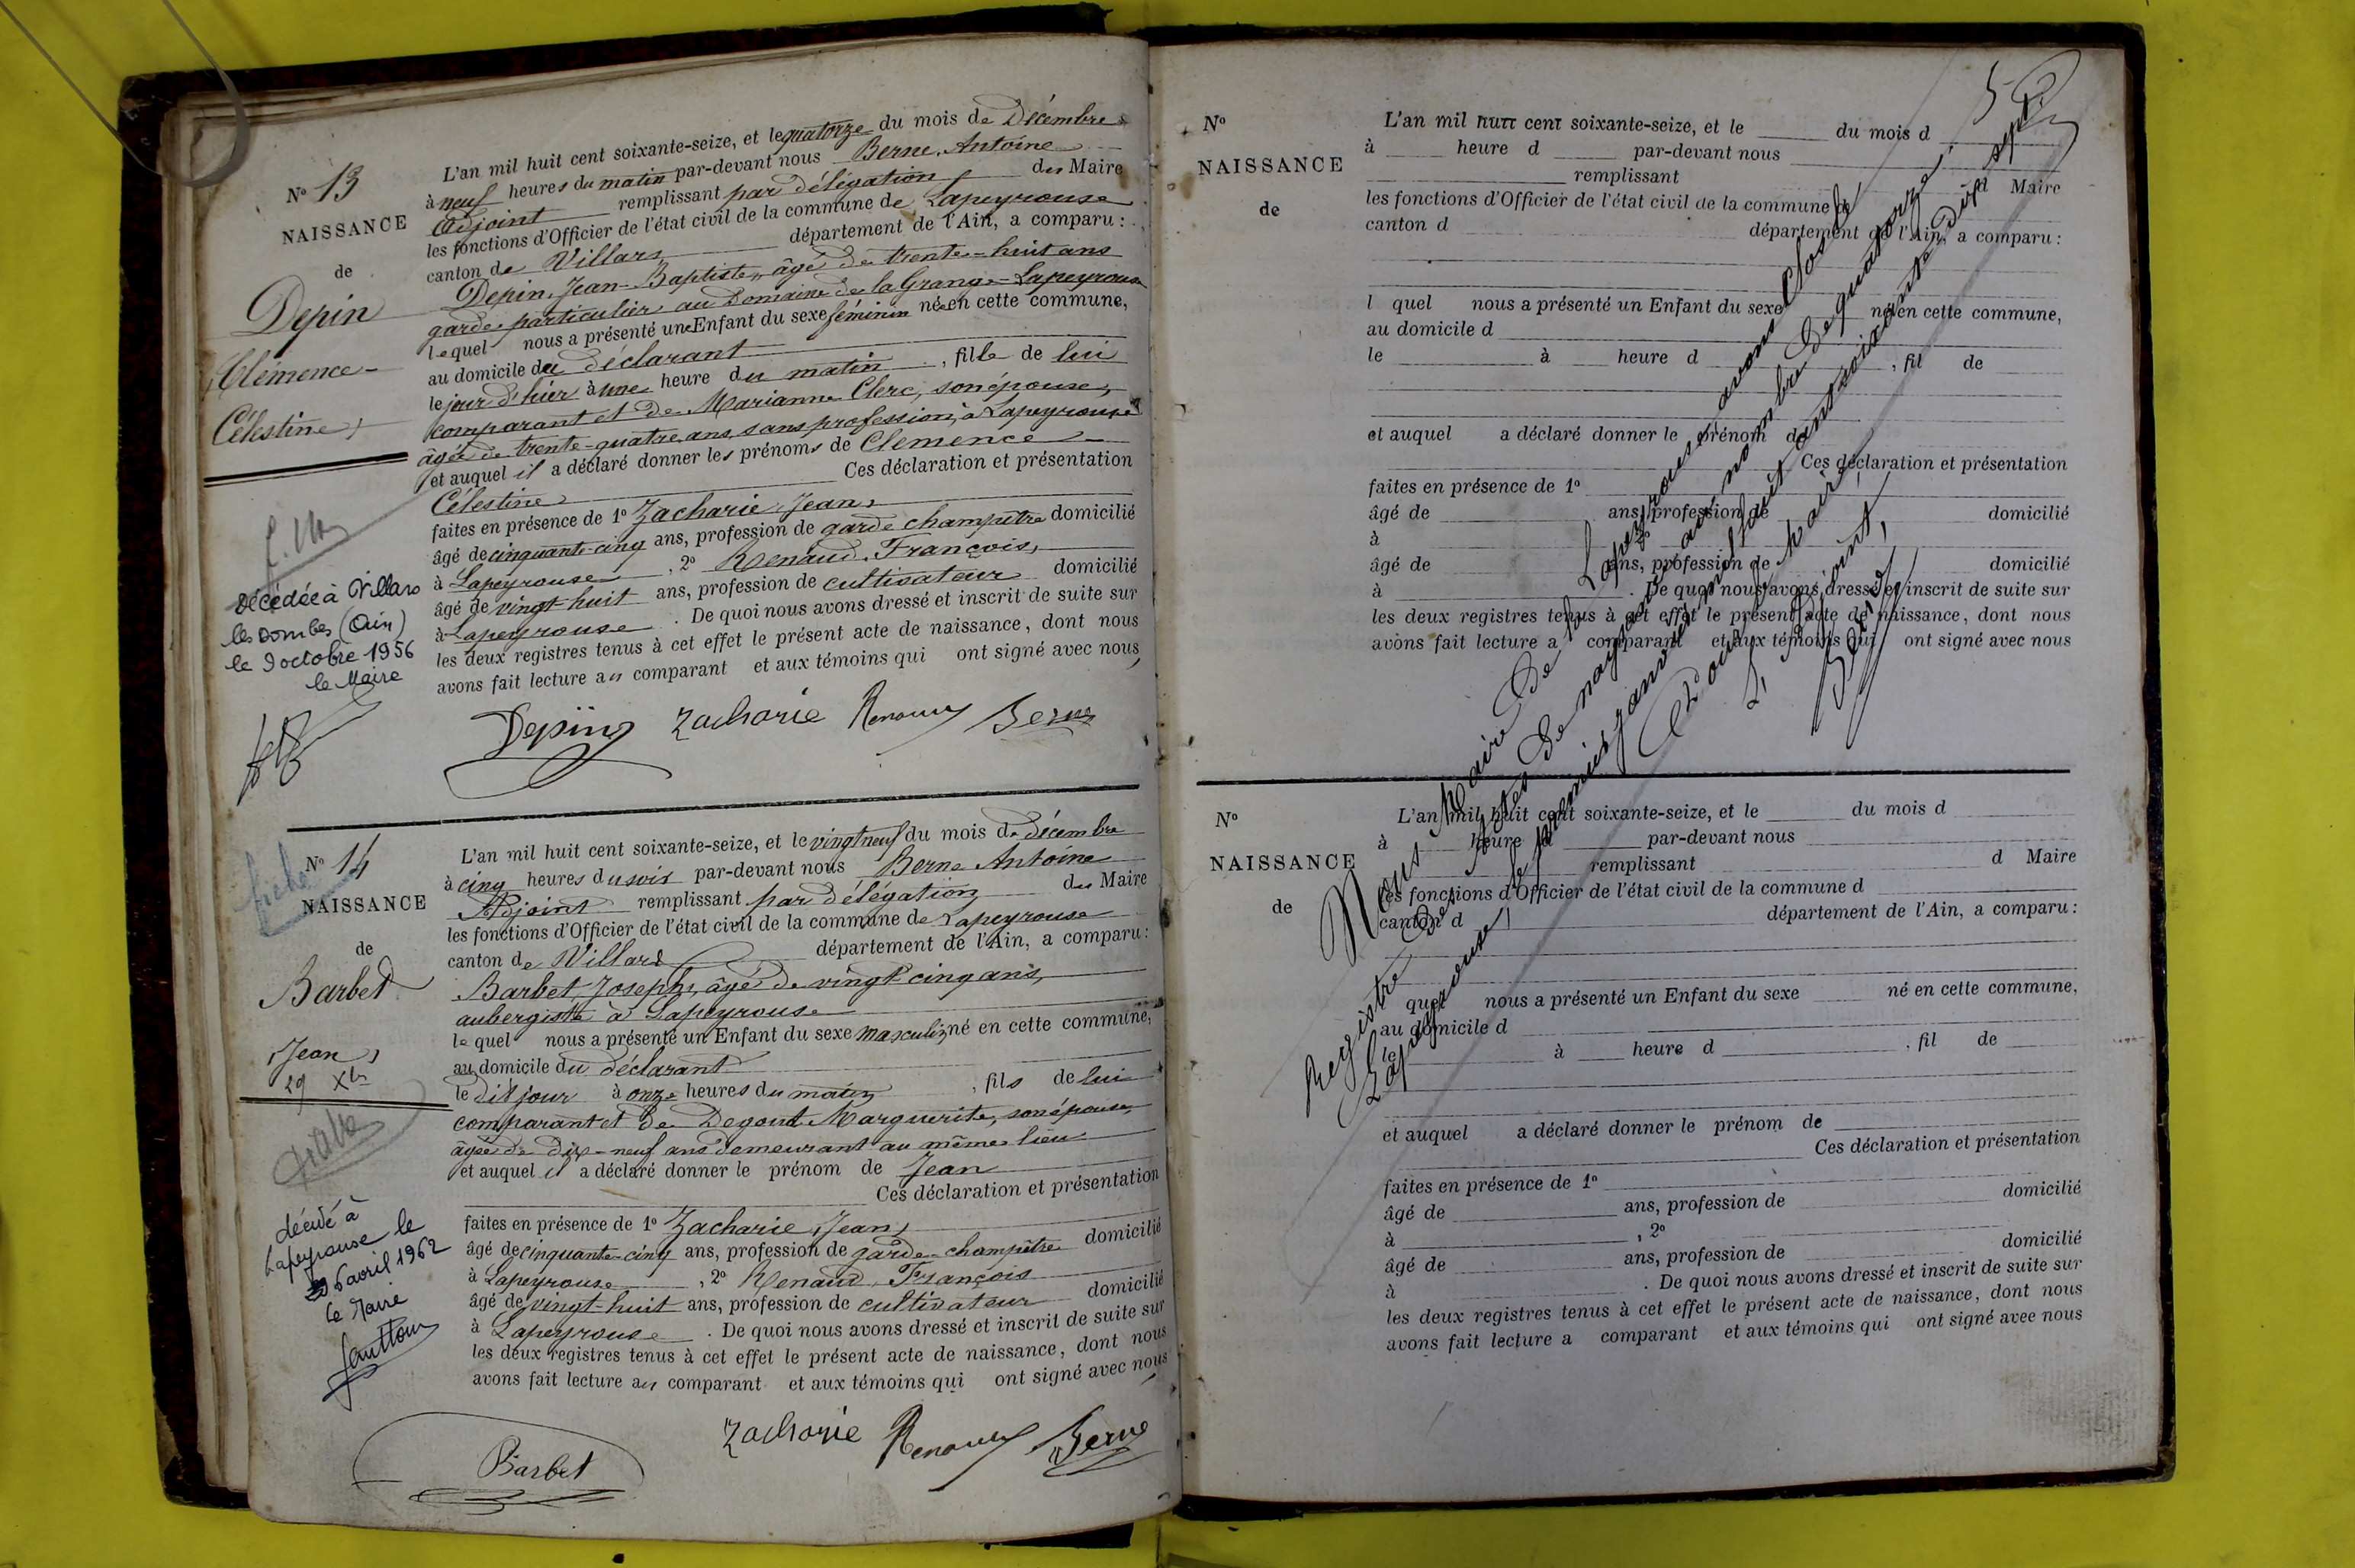 N° 13
NAISSANCE
de
Depin
Clémence
Célestine
L'an mil huit cent soixante-seize, et le quatorze du mois de Décembre
à neuf heures du matin par-devant nous Berne, Antoine
Adjoint remplissant par délégation du Maire
les fonctions d'Officier de l'état civil de la commune de Lapeyrouse
canton de Villars département de l'Ain, a comparu :
Depin, Jean-Baptiste, âgé de trente-huit ans
garde particulier au Domaine de la Grange-Lapeyrouse
lequel nous a présenté une Enfant du sexe féminin née en cette commune,
au domicile du déclarant
le jour d'hier à une heure du matin , fille de lui
comparant et de Marianne Clerc, son épouse,
âgée de trente-quatre ans, sans profession, à Lapeyrouse
et auquel il a déclaré donner les prénoms de Clémence
Célestine Ces déclaration et présentation
faites en présence de 1° Zacharie Jean,
âgé de cinquante-cinq ans, profession de garde champêtre domicilié
à Lapeyrouse , 2° Renaud, François,
âgé de vingt huit ans, profession de cultivateur domicilié
à Lapeyrouse . De quoi nous avons dressé et inscrit de suite sur
les deux registres tenus à cet effet le présent acte de naissance, dont nous
avons fait lecture au comparant et aux témoins qui ont signé avec nous,
Décédée à Villars
les Dombes (Ain)
le 9 octobre 1956
le Maire
Depin Zacharie Renaud Berne
N° 14
fiche
NAISSANCE
de
Barbet
Jean
29 Xbre
L'an mil huit cent soixante-seize, et le vingt neuf du mois de décembre
à cinq heures du soir par-devant nous Berne Antoine
Adjoint remplissant par délégation du Maire
les fonctions d'Officier de l'état civil de la commune de Lapeyrouse
canton de Villars département de l'Ain, a comparu :
Barbet, Joseph, âgé de vingt cinq ans,
aubergiste à Lapeyrouse
lequel nous a présenté un Enfant du sexe masculin né en cette commune,
au domicile du déclarant
le dit jour à onze heures du matin , fils de lui
comparant et de Degout Marguerite, son épouse,
âgée de dix-neuf ans demeurant au même lieu
et auquel il a déclaré donner le prénom de Jean
Ces déclaration et présentation
faites en présence de 1° Zacharie Jean,
âgé de cinquante-cinq ans, profession de garde-champêtre domicilié
à Lapeyrouse , 2° Renaud, François
âgé de vingt-huit ans, profession de cultivateur domicilié
à Lapeyrouse . De quoi nous avons dressé et inscrit de suite sur
les deux registres tenus à cet effet le présent acte de naissance, dont nous
avons fait lecture au comparant et aux témoins qui ont signé avec nous,
décédé à
Lapeyrouse le
6 avril 1962
le Maire
Barbet Zacharie Renaud Berne
5
N°
NAISSANCE
de
L'an mil huit cent soixante-seize, et le du mois d
à heure d par-devant nous
remplissant d Maire
les fonctions d'Officier de l'état civil de la commune d
canton d département de l'Ain, a comparu :
l quel nous a présenté un Enfant du sexe né en cette commune,
au domicile d
le à heure d , fil de
et auquel a déclaré donner le prénom de
Ces déclaration et présentation
faites en présence de 1°
âgé de ans, profession de domicilié
à
âgé de ans, profession de domicilié
à . De quoi nous avons dressé et inscrit de suite sur
les deux registres tenus à cet effet le présent acte de naissance, dont nous
avons fait lecture a comparant et aux témoins qui ont signé avec nous
Nous Maire de Lapeyrouse, avons clos le
Registre des actes de naissance au nombre de quatorze,
Lapeyrouse, le premier janvier mil huit cent soixante dix sept
Pour le Maire,
L'adjoint,
Berne
N°
NAISSANCE
de
L'an mil huit cent soixante-seize, et le du mois d
à heure d par-devant nous
remplissant d Maire
les fonctions d'Officier de l'état civil de la commune d
canton d département de l'Ain, a comparu :
quel nous a présenté un Enfant du sexe né en cette commune,
au domicile d
le à heure d , fil de
et auquel a déclaré donner le prénom de
Ces déclaration et présentation
faites en présence de 1°
âgé de ans, profession de domicilié
à , 2°
âgé de ans, profession de domicilié
à . De quoi nous avons dressé et inscrit de suite sur
les deux registres tenus à cet effet le présent acte de naissance, dont nous
avons fait lecture a comparant et aux témoins qui ont signé avec nous